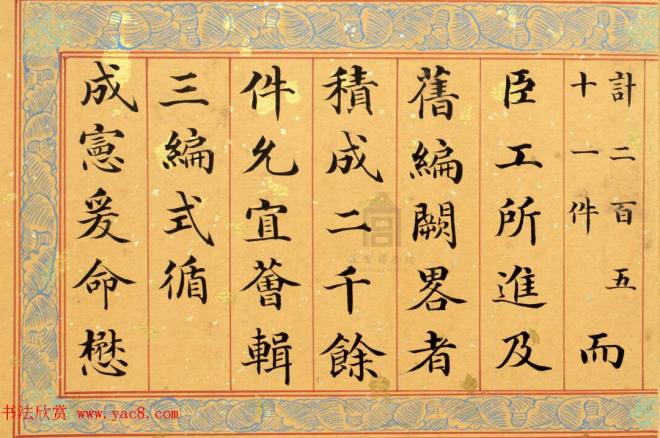 計二百五
十一件
而
臣工所進及
舊編闕畧者
積成二千餘
件允宜薈輯
三編式循
成憲爰命懋
书法欣赏 www.yac8.com